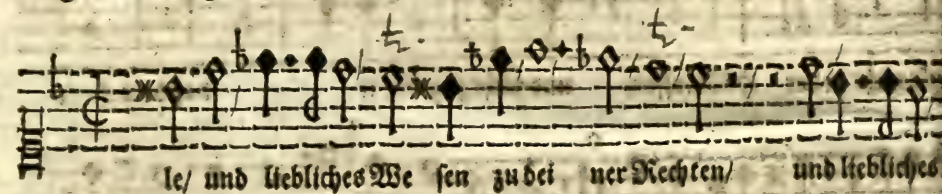 le/ und liebliches We sen zu dei ner Rechten/ und liebliches